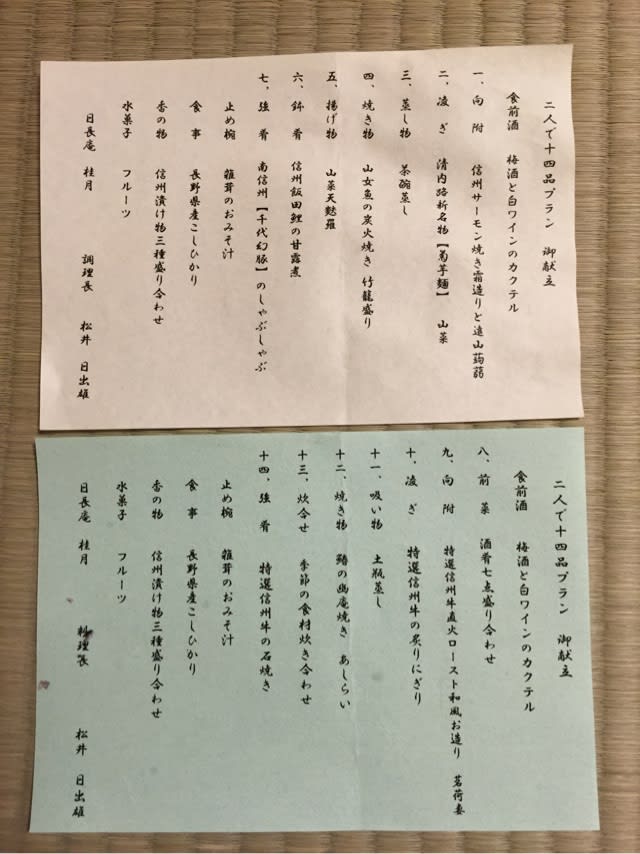 二人で十四品プラン 御献立
食前酒 梅酒と白ワインのカクテル
一、向附 信州サーモン焼き霜造りと遠山蒟蒻
二、凌ぎ 清内路新名物【菊芋麺】 山菜
三、蒸し物 茶碗蒸し
四、焼き物 山女魚の炭火焼き 竹籠盛り
五、揚げ物 山菜天麩羅
六、鉢肴 信州飯田鯉の甘露煮
七、強肴 南信州【千代幻豚】のしゃぶしゃぶ
止め椀 雑茸のおみそ汁
食事 長野県産こしひかり
香の物 信州漬け物三種盛り合わせ
水菓子 フルーツ
日長庵 桂月 調理長 松井 日出雄
二人で十四品プラン 御献立
食前酒 梅酒と白ワインのカクテル
八、前菜 酒肴七点盛り合わせ
九、向附 特選信州牛直火ロースト和風お造り 茗荷妻
十、凌ぎ 特選信州牛の炙りにぎり
十一、吸い物 土瓶蒸し
十二、焼き物 鰆の幽庵焼き あしらい
十三、炊合せ 季節の食材炊き合わせ
十四、強肴 特選信州牛の石焼き
止め椀 雑茸のおみそ汁
食事 長野県産こしひかり
香の物 信州漬け物三種盛り合わせ
水菓子 フルーツ
日長庵 桂月 料理長 松井 日出雄